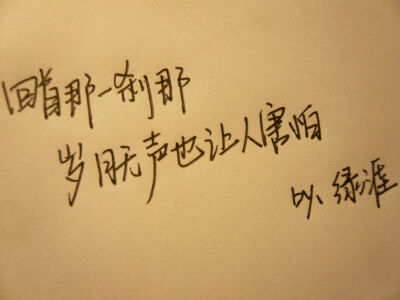 回首那一刹那
岁月无声也让人害怕
by、绿涯